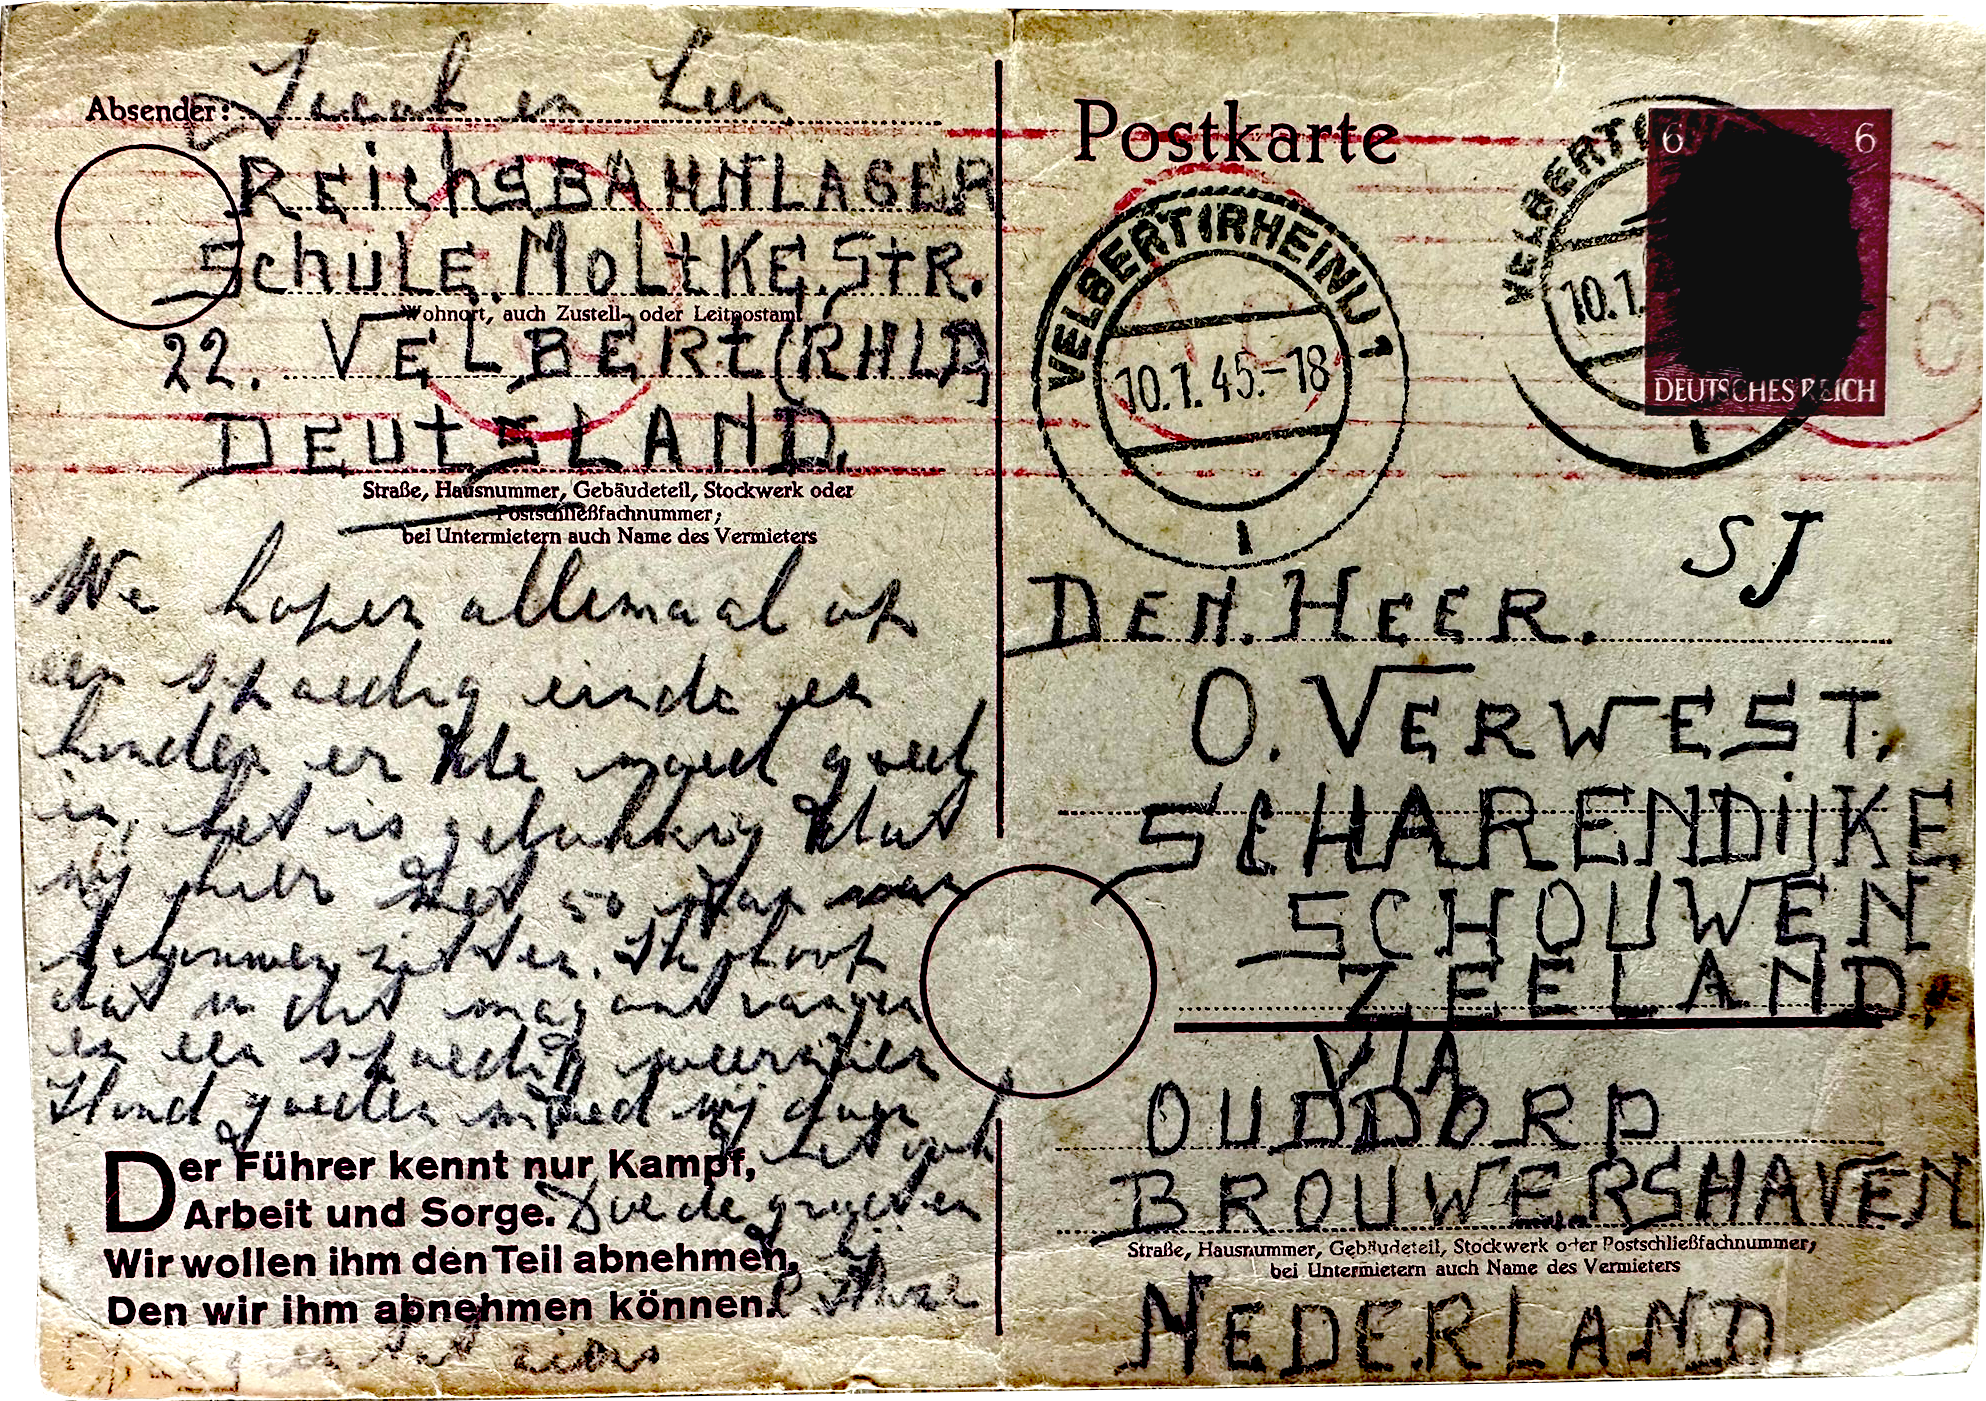 Absender:
Jacob en Leen
REichsBAHNLAGER
SchULE. MOLtKE. StR.
Wohnort, auch Zustell- oder Leitpostamt
22. VELBERt (RHLD)
DEUtSLAND.
Straße, Hausnummer, Gebäudeteil, Stockwerk oder
Postschließfachnummer;
bei Untermietern auch Name des Vermieters
We hopen allemaal op
een spoedig einde en
houden er de moed goed
in, het is gelukkig dat
wij hier met 50 man
zitten. Ik hoop
dat u dit mag ontvangen
en een spoedig weerzien
Houd goeden moed wij doen
het ook
Der Führer kennt nur Kampf,
Arbeit und Sorge.
Wir wollen ihm den Teil abnehmen,
Den wir ihm abnehmen können.
de groeten
Postkarte
VELBERT (RHEINL) 1
10.1.45.-18
VELBERT
10.1.
6 6
DEUTSCHES REICH
SJ
DEN. HEER.
O. VERWEST.
SCHARENDIJKE
SCHOUWEN
ZEELAND
VIA
OUDDORP
BROUWERSHAVEN
Straße, Hausnummer, Gebäudeteil, Stockwerk oder Postschließfachnummer;
bei Untermietern auch Name des Vermieters
NEDERLAND